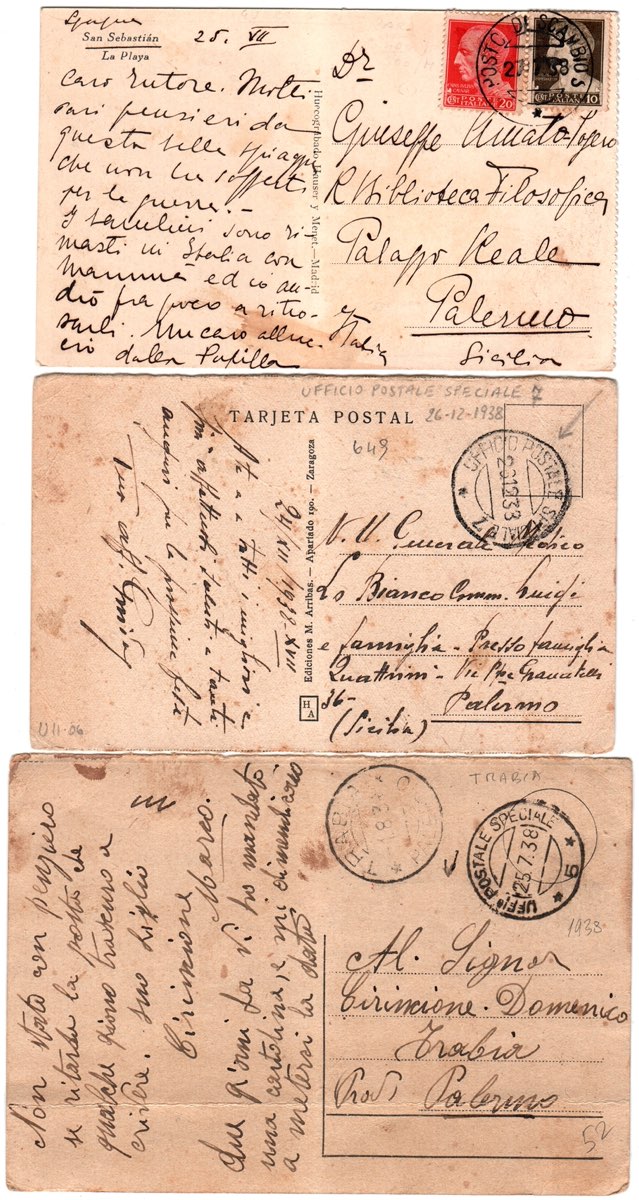 Spagna
San Sebastián
La Playa
25. VII
Caro Tutore. Molti
cari pensieri da
questa bella spiaggia
che non ha sofferto
per la guerra.
I bambini sono ri
masti in Italia con
mamma ed io an
drò fra poco a ritro-
varli. Un caro abbrac
cio dalla Pupilla
Huecograbado Hauser y Menet.-Madrid
POSTA DI SCAMBIO
POSTE ITALIANE
CENT 20
CENT 10
Dr
Giuseppe Amato Pojero
R Biblioteca Filosofica
Palazzo Reale
Palermo
Italia
Sicilia
UFFICIO POSTALE SPECIALE 7
26-12-1938
TARJETA POSTAL
649
UFFICIO POSTALE SPECIALE 7
26.12.38
24/XII/1938 XVII
A te e tutti i migliori e
più affettuosi saluti e tanti
auguri per le prossime feste
tuo aff.
Ediciones M. Arribas. - Apartado 190. - Zaragoza
HA
Generale Medico
Lo Bianco Comm. Luigi
e famiglia - Presso famiglia
Quattrini - Via Ppe Granatelli
36-
Palermo
(Sicilia)
U11-06
Non state con pensiero
se ritarda la posta che
qualche giorno trascuro a
crivere. suo figlio
Cirincione
Marco.
due giorni fa vi ho mandato
una cartolina, e mi dimenticavo
a metersi la data
TRABIA
TRABIA
UFFI° POSTALE SPECIALE 5
25.7.38
1938
Al. Signor
Cirincione. Domenico
Trabia
Prov. Palermo
52